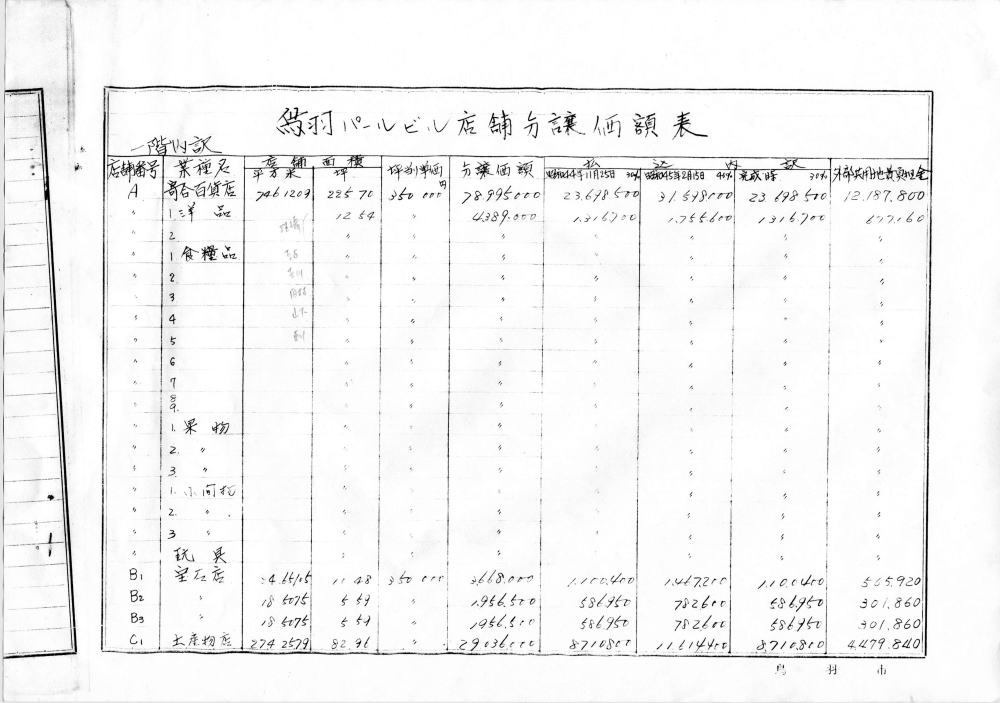 鳥羽パールビル店舗分譲価額表
一階内訳
店舗番号 業種名 店舗面積 平方米 坪 坪当単価 分譲価額 払込内訳 昭和44年11月25日 30% 昭和45年2月15日 40% 完成時 30% 外部共用地費負担金
円
A 寄合百貨店 746 1209 225 70 350 000 78.995000 23.698500 31.598000 23.698500 12.187.800
〃 1.洋品 12 54 〃 4389.000 1.316700 1.755600 1.316700 677.160
〃 2 〃 〃 〃 〃 〃 〃 〃
〃 1 食糧品 〃 〃 〃 〃 〃 〃 〃
〃 2 〃 〃 〃 〃 〃 〃 〃
〃 3 〃 〃 〃 〃 〃 〃 〃
〃 4 〃 〃 〃 〃 〃 〃 〃
〃 5 〃 〃 〃 〃 〃 〃 〃
〃 6 〃 〃 〃 〃 〃 〃 〃
〃 7 〃 〃 〃 〃 〃 〃 〃
8
〃 9. 〃 〃 〃 〃 〃 〃 〃
〃 1.果物 〃 〃 〃 〃 〃 〃 〃
〃 2. 〃 〃 〃 〃 〃 〃 〃 〃
〃 3. 〃 〃 〃 〃 〃 〃 〃 〃
〃 1.小間物 〃 〃 〃 〃 〃 〃 〃
〃 2. 〃 〃 〃 〃 〃 〃 〃 〃
〃 3 〃 〃 〃 〃 〃 〃 〃 〃
〃 玩具 〃 〃 〃 〃 〃 〃 〃
B1 宝石店 34.65105 10 48 350 000 3.668.000 1.100.400 1.467.200 1.100400 565.920
B2 〃 18 5075 5 59 〃 1.956.500 586950 782600 586.950 301.860
B3 〃 18 5075 5 59 〃 1956.500 586950 782600 586950 301.860
C1 土産物店 274 2579 82.96 〃 29036000 8710800 11.614400 8.710.800 4.479.840
鳥羽市